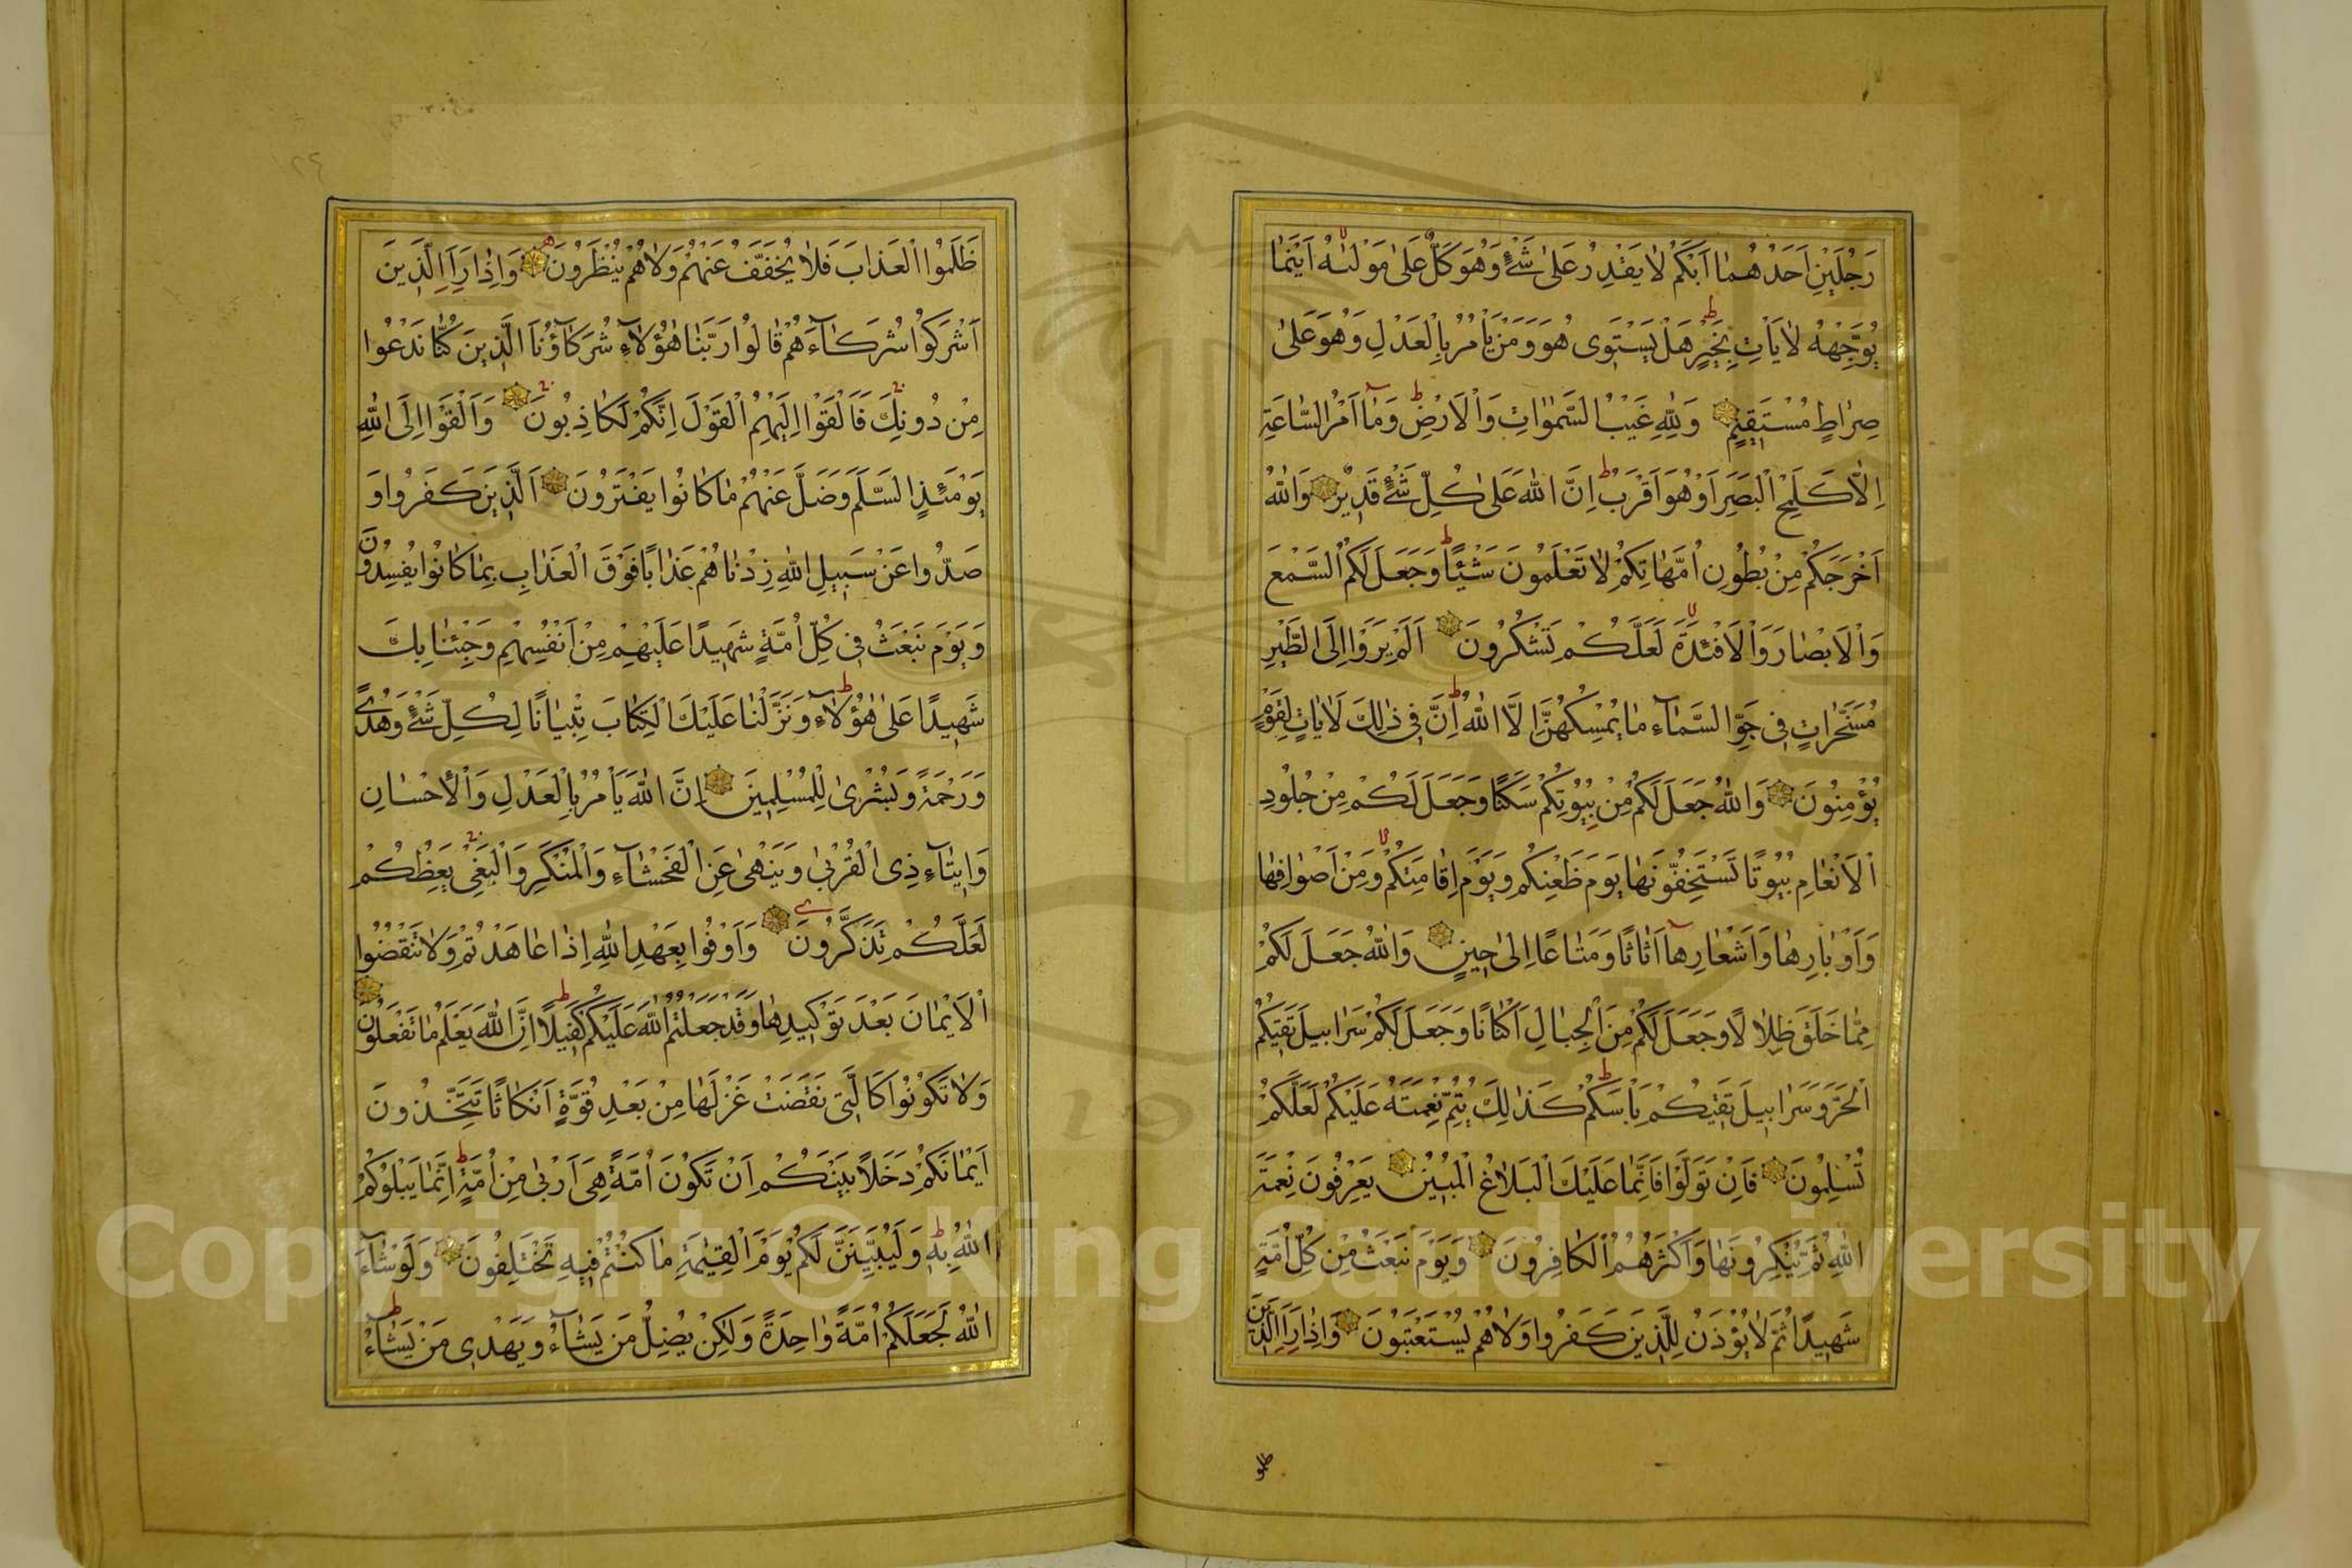 رَجُلَيْنِ اَحَدُهُمَا اَبْكَمُ لَا يَقْدِرُ عَلٰى شَيْءٍ وَهُوَ كَلٌّ عَلٰى مَوْلٰيهُ اَيْنَمَا
يُوَجِّهْهُ لَا يَاْتِ بِخَيْرٍ هَلْ يَسْتَوِى هُوَ وَمَنْ يَاْمُرُ بِالْعَدْلِ وَهُوَ عَلٰى
صِرَاطٍ مُسْتَقِيمٍ وَلِلّٰهِ غَيْبُ السَّمٰوَاتِ وَالْاَرْضِ وَمَا اَمْرُ السَّاعَةِ
اِلَّا كَلَمْحِ الْبَصَرِ اَوْ هُوَ اَقْرَبُ اِنَّ اللّٰهَ عَلٰى كُلِّ شَيْءٍ قَدِيرٌ وَاللّٰهُ
اَخْرَجَكُمْ مِنْ بُطُونِ اُمَّهَاتِكُمْ لَا تَعْلَمُونَ شَيْئًا وَجَعَلَ لَكُمُ السَّمْعَ
وَالْاَبْصَارَ وَالْاَفْئِدَةَ لَعَلَّكُمْ تَشْكُرُونَ اَلَمْ يَرَوْا اِلَى الطَّيْرِ
مُسَخَّرَاتٍ فِى جَوِّ السَّمَاءِ مَا يُمْسِكُهُنَّ اِلَّا اللّٰهُ اِنَّ فِى ذٰلِكَ لَاٰيَاتٍ لِقَوْمٍ
يُؤْمِنُونَ وَاللّٰهُ جَعَلَ لَكُمْ مِنْ بُيُوتِكُمْ سَكَنًا وَجَعَلَ لَكُمْ مِنْ جُلُودِ
الْاَنْعَامِ بُيُوتًا تَسْتَخِفُّونَهَا يَوْمَ ظَعْنِكُمْ وَيَوْمَ اِقَامَتِكُمْ وَمِنْ اَصْوَافِهَا
وَاَوْبَارِهَا وَاَشْعَارِهَا اَثَاثًا وَمَتَاعًا اِلٰى حِينٍ وَاللّٰهُ جَعَلَ لَكُمْ
مِمَّا خَلَقَ ظِلَالًا وَجَعَلَ لَكُمْ مِنَ الْجِبَالِ اَكْنَانًا وَجَعَلَ لَكُمْ سَرَابِيلَ تَقِيكُمُ
الْحَرَّ وَسَرَابِيلَ تَقِيكُمْ بَاْسَكُمْ كَذٰلِكَ يُتِمُّ نِعْمَتَهُ عَلَيْكُمْ لَعَلَّكُمْ
تُسْلِمُونَ فَاِنْ تَوَلَّوْا فَاِنَّمَا عَلَيْكَ الْبَلَاغُ الْمُبِينُ يَعْرِفُونَ نِعْمَةَ
اللّٰهِ ثُمَّ يُنْكِرُونَهَا وَاَكْثَرُهُمُ الْكَافِرُونَ وَيَوْمَ نَبْعَثُ مِنْ كُلِّ اُمَّةٍ
شَهِيدًا ثُمَّ لَا يُؤْذَنُ لِلَّذِينَ كَفَرُوا وَلَا هُمْ يُسْتَعْتَبُونَ وَاِذَا رَاَ الَّذِينَ
ظَلَمُوا الْعَذَابَ فَلَا يُخَفَّفُ عَنْهُمْ وَلَا هُمْ يُنْظَرُونَ وَاِذَا رَاَ الَّذِينَ
اَشْرَكُوا شُرَكَاءَهُمْ قَالُوا رَبَّنَا هٰؤُلَاءِ شُرَكَاؤُنَا الَّذِينَ كُنَّا نَدْعُوا
مِنْ دُونِكَ فَاَلْقَوْا اِلَيْهِمُ الْقَوْلَ اِنَّكُمْ لَكَاذِبُونَ وَاَلْقَوْا اِلَى اللّٰهِ
يَوْمَئِذٍ السَّلَمَ وَضَلَّ عَنْهُمْ مَا كَانُوا يَفْتَرُونَ اَلَّذِينَ كَفَرُوا وَ
صَدُّوا عَنْ سَبِيلِ اللّٰهِ زِدْنَاهُمْ عَذَابًا فَوْقَ الْعَذَابِ بِمَا كَانُوا يُفْسِدُونَ
وَيَوْمَ نَبْعَثُ فِى كُلِّ اُمَّةٍ شَهِيدًا عَلَيْهِمْ مِنْ اَنْفُسِهِمْ وَجِئْنَا بِكَ
شَهِيدًا عَلٰى هٰؤُلَاءِ وَنَزَّلْنَا عَلَيْكَ الْكِتَابَ تِبْيَانًا لِكُلِّ شَيْءٍ وَهُدًى
وَرَحْمَةً وَبُشْرٰى لِلْمُسْلِمِينَ اِنَّ اللّٰهَ يَاْمُرُ بِالْعَدْلِ وَالْاِحْسَانِ
وَاِيتَاءِ ذِى الْقُرْبٰى وَيَنْهٰى عَنِ الْفَحْشَاءِ وَالْمُنْكَرِ وَالْبَغْىِ يَعِظُكُمْ
لَعَلَّكُمْ تَذَكَّرُونَ وَاَوْفُوا بِعَهْدِ اللّٰهِ اِذَا عَاهَدْتُمْ وَلَا تَنْقُضُوا
الْاَيْمَانَ بَعْدَ تَوْكِيدِهَا وَقَدْ جَعَلْتُمُ اللّٰهَ عَلَيْكُمْ كَفِيلًا اِنَّ اللّٰهَ يَعْلَمُ مَا تَفْعَلُونَ
وَلَا تَكُونُوا كَالَّتِى نَقَضَتْ غَزْلَهَا مِنْ بَعْدِ قُوَّةٍ اَنْكَاثًا تَتَّخِذُونَ
اَيْمَانَكُمْ دَخَلًا بَيْنَكُمْ اَنْ تَكُونَ اُمَّةٌ هِىَ اَرْبٰى مِنْ اُمَّةٍ اِنَّمَا يَبْلُوكُمُ
اللّٰهُ بِهِ وَلَيُبَيِّنَنَّ لَكُمْ يَوْمَ الْقِيٰمَةِ مَا كُنْتُمْ فِيهِ تَخْتَلِفُونَ وَلَوْ شَاءَ
اللّٰهُ لَجَعَلَكُمْ اُمَّةً وَاحِدَةً وَلٰكِنْ يُضِلُّ مَنْ يَشَاءُ وَيَهْدِى مَنْ يَشَاءُ
Copyright © King Saud University